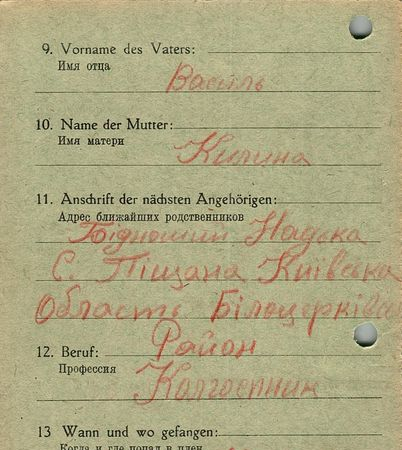 9. Vorname des Vaters:
Имя отца
Василь
10. Name der Mutter:
Имя матери
Килина
11. Anschrift der nächsten Angehörigen:
Адрес ближайших родственников
Надька
С. Піщана Київська
Область Білоцерківсь
Район
12. Beruf:
Профессия
Колгоспник
13 Wann und wo gefangen:
Когда и где попал в плен